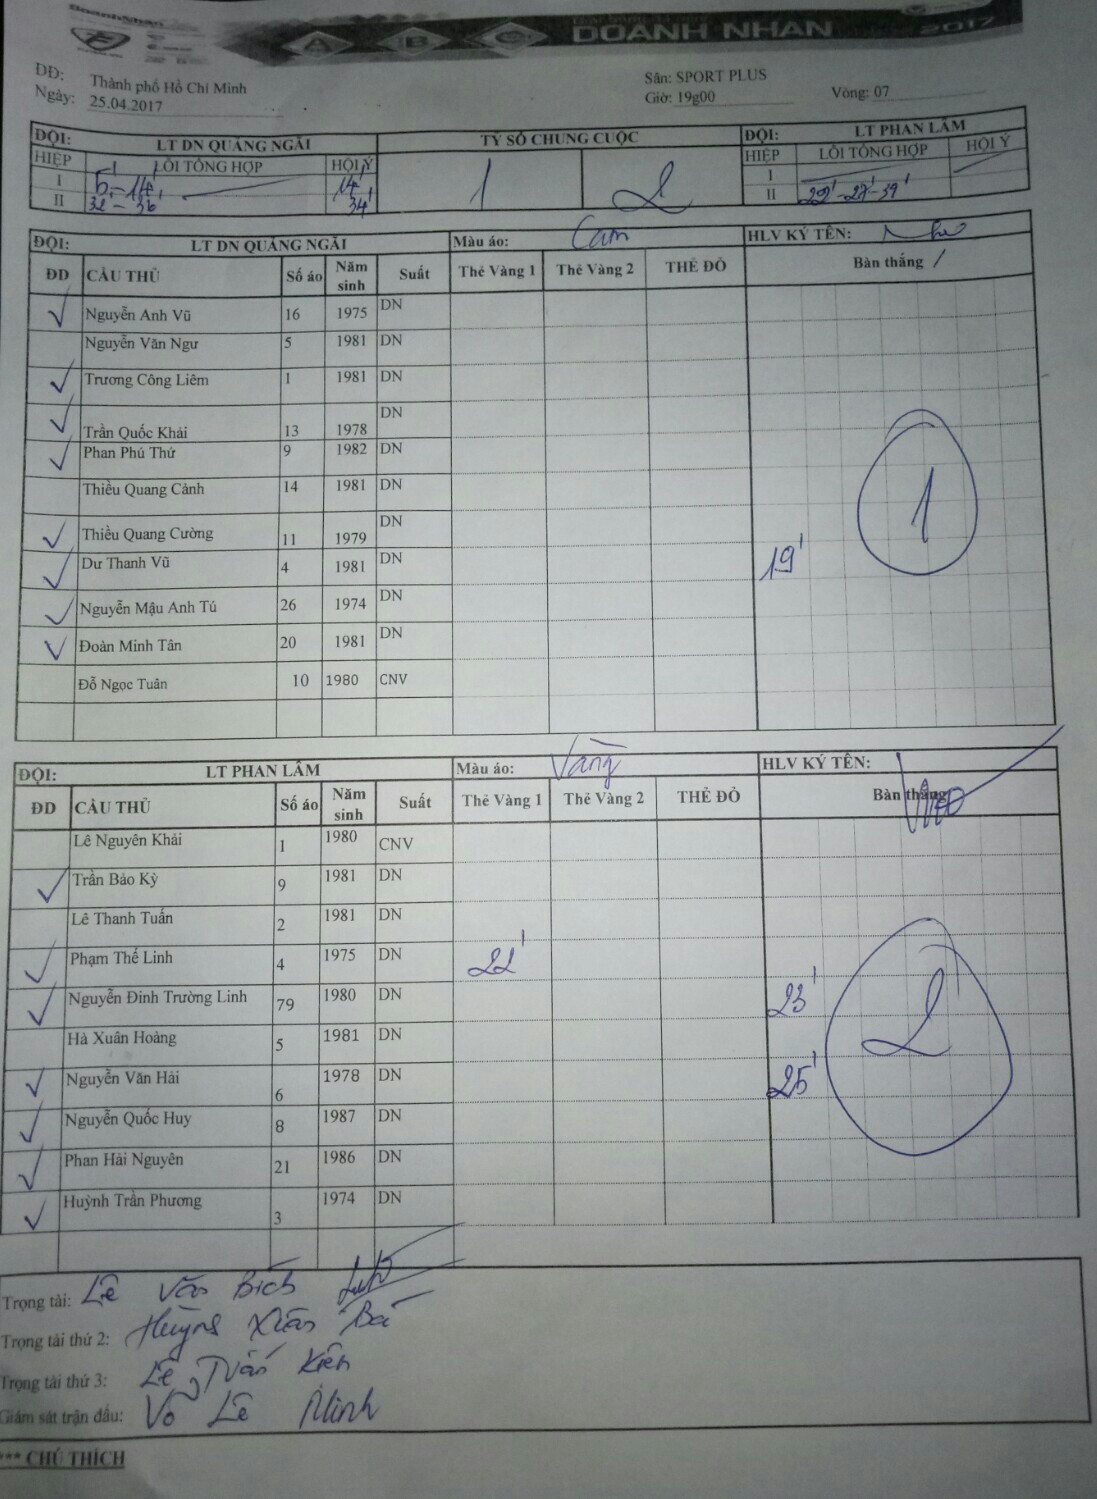 DoanhNhan
A B C DOANH NHAN 2017
ĐĐ: Thành phố Hồ Chí Minh Sân: SPORT PLUS
Ngày: 25.04.2017 Giờ: 19g00 Vòng: 07
ĐỘI: LT DN QUẢNG NGÃI TỶ SỐ CHUNG CUỘC ĐỘI: LT PHAN LÂM
HIỆP LỖI TỔNG HỢP HỘI Ý 1 2 HIỆP LỖI TỔNG HỢP HỘI Ý
I 5' - 14' 14' I
II 32' - 36' 34' II 22' - 27' - 39'
ĐỘI: LT DN QUẢNG NGÃI Màu áo: Cam HLV KÝ TÊN:
ĐD CẦU THỦ Số áo Năm sinh Suất Thẻ Vàng 1 Thẻ Vàng 2 THẺ ĐỎ Bàn thắng
✓ Nguyễn Anh Vũ 16 1975 DN
Nguyễn Văn Ngư 5 1981 DN
✓ Trương Công Liêm 1 1981 DN
✓ Trần Quốc Khải 13 1978 DN
✓ Phan Phú Thứ 9 1982 DN
Thiều Quang Cảnh 14 1981 DN
✓ Thiều Quang Cường 11 1979 DN
✓ Dư Thanh Vũ 4 1981 DN 19'
✓ Nguyễn Mậu Anh Tú 26 1974 DN
✓ Đoàn Minh Tân 20 1981 DN
Đỗ Ngọc Tuân 10 1980 CNV
1
ĐỘI: LT PHAN LÂM Màu áo: Vàng HLV KÝ TÊN:
ĐD CẦU THỦ Số áo Năm sinh Suất Thẻ Vàng 1 Thẻ Vàng 2 THẺ ĐỎ Bàn thắng
Lê Nguyên Khải 1 1980 CNV
✓ Trần Bảo Kỳ 9 1981 DN
Lê Thanh Tuấn 2 1981 DN
✓ Phạm Thế Linh 4 1975 DN 22'
✓ Nguyễn Đinh Trường Linh 79 1980 DN 23'
Hà Xuân Hoàng 5 1981 DN
✓ Nguyễn Văn Hải 6 1978 DN 25'
✓ Nguyễn Quốc Huy 8 1987 DN
✓ Phan Hải Nguyên 21 1986 DN
✓ Huỳnh Trần Phương 3 1974 DN
2
Trọng tài: Lê Văn Bích
Trọng tài thứ 2: Huỳnh Xuân Bá
Trọng tài thứ 3: Lê Tuấn Kiên
Giám sát trận đấu: Võ Lê Minh
*** CHÚ THÍCH